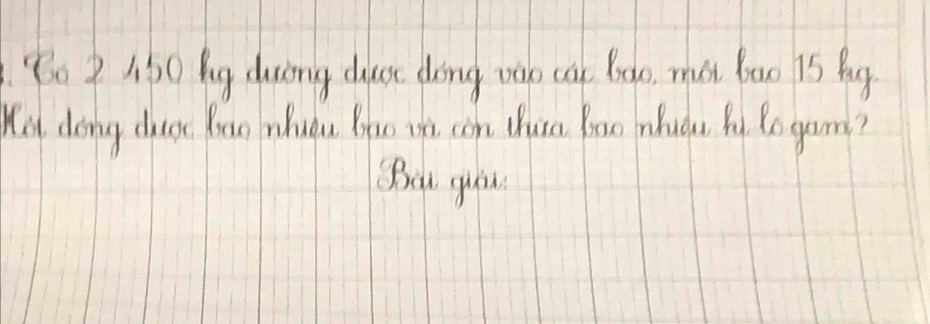 . Có 2 450 kg đường được đóng vào các bao, mỗi bao 15 kg.
Hỏi đóng được bao nhiêu bao và còn thừa bao nhiêu ki lô gam?
Bài giải: